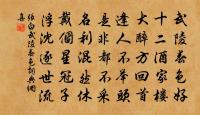 武陵春色好
十二酒家樓
大醉方回首
逢人不舉頭
是非都不采
名利混然休
戴個星冠子
浮沈逐世流
張白武陵春色詞典網